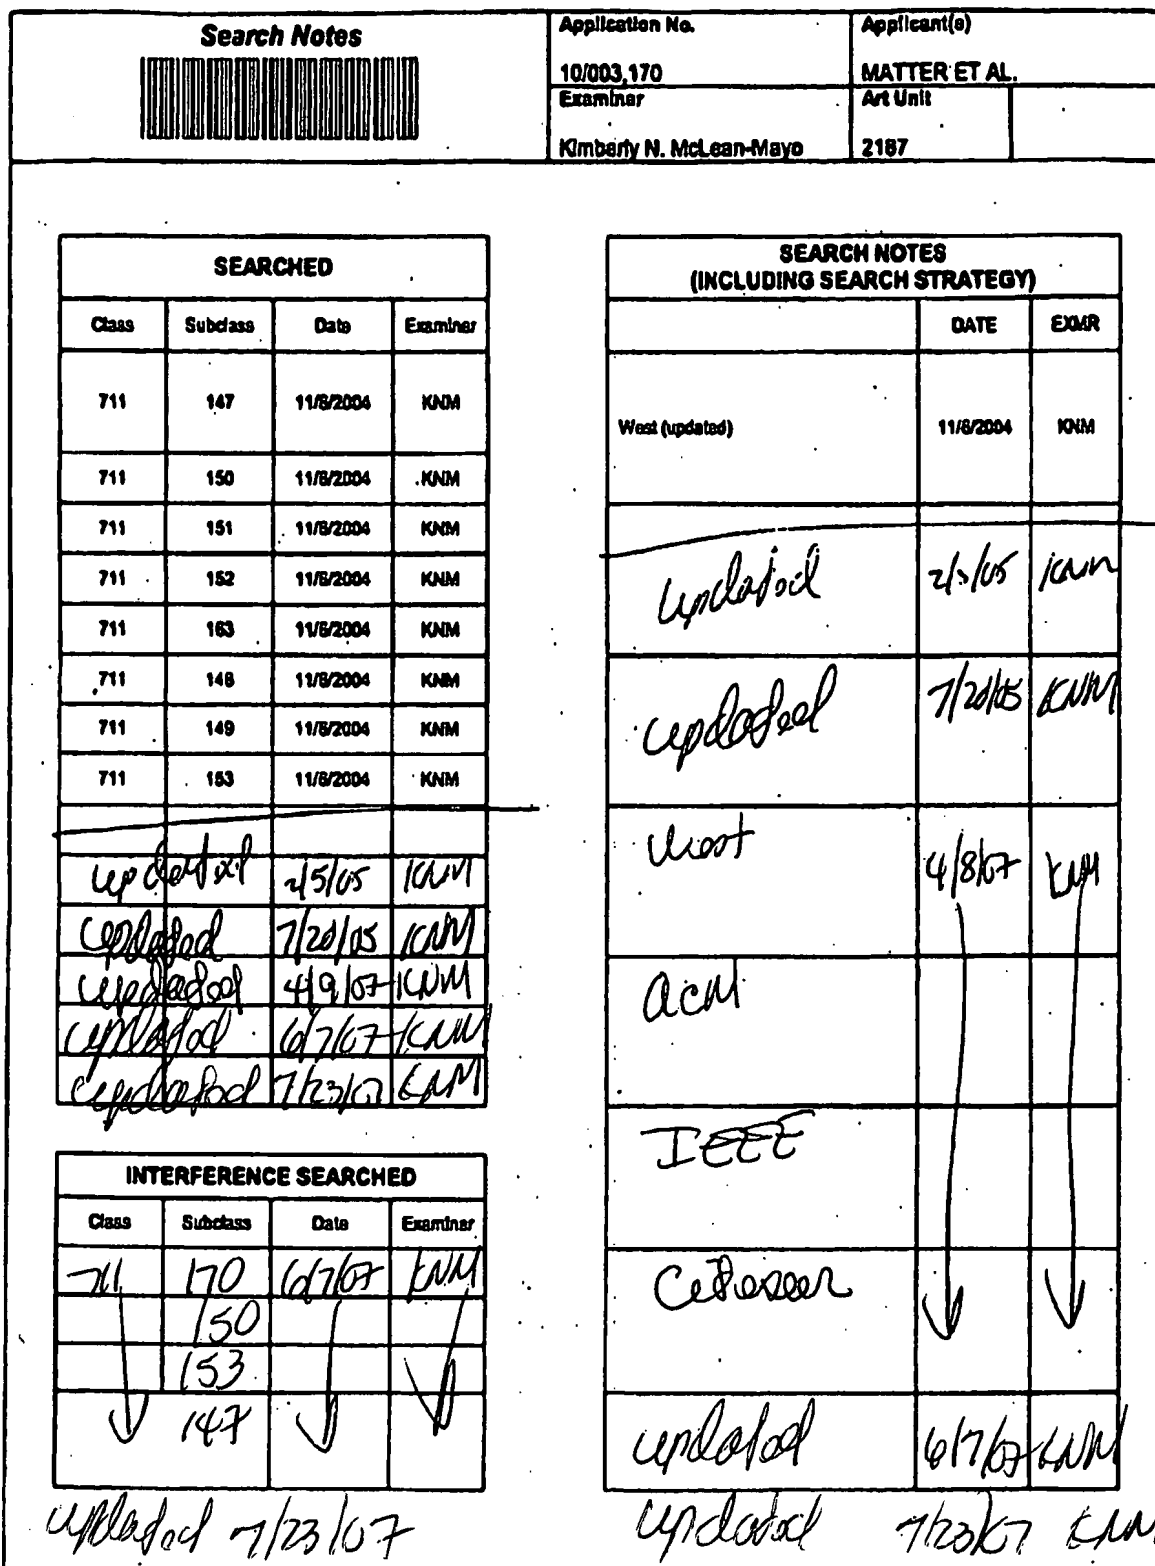 Search Notes
Application No.
10/003,170
Applicant(s)
MATTER ET AL.
Examiner
Kimberly N. McLean-Mayo
Art Unit
2187
SEARCHED
Class Subclass Date Examiner
711 147 11/6/2004 KNM
711 150 11/6/2004 KNM
711 151 11/6/2004 KNM
711 152 11/6/2004 KNM
711 163 11/6/2004 KNM
711 148 11/6/2004 KNM
711 149 11/6/2004 KNM
711 153 11/6/2004 KNM
updated 2/5/05 KNM
updated 7/20/05 KNM
updated 4/9/07 KNM
updated 6/7/07 KNM
updated 7/23/07 KNM
INTERFERENCE SEARCHED
Class Subclass Date Examiner
711 170 6/7/07 KNM
150
153
147
updated 7/23/07
SEARCH NOTES
(INCLUDING SEARCH STRATEGY)
DATE EXMR
West (updated) 11/6/2004 KNM
updated KNM
updated 7/20/05 KNM
West 4/8/07 KNM
ACM
IEEE
Citeseer
updated 6/7/07 KNM
updated 7/23/07 KNM